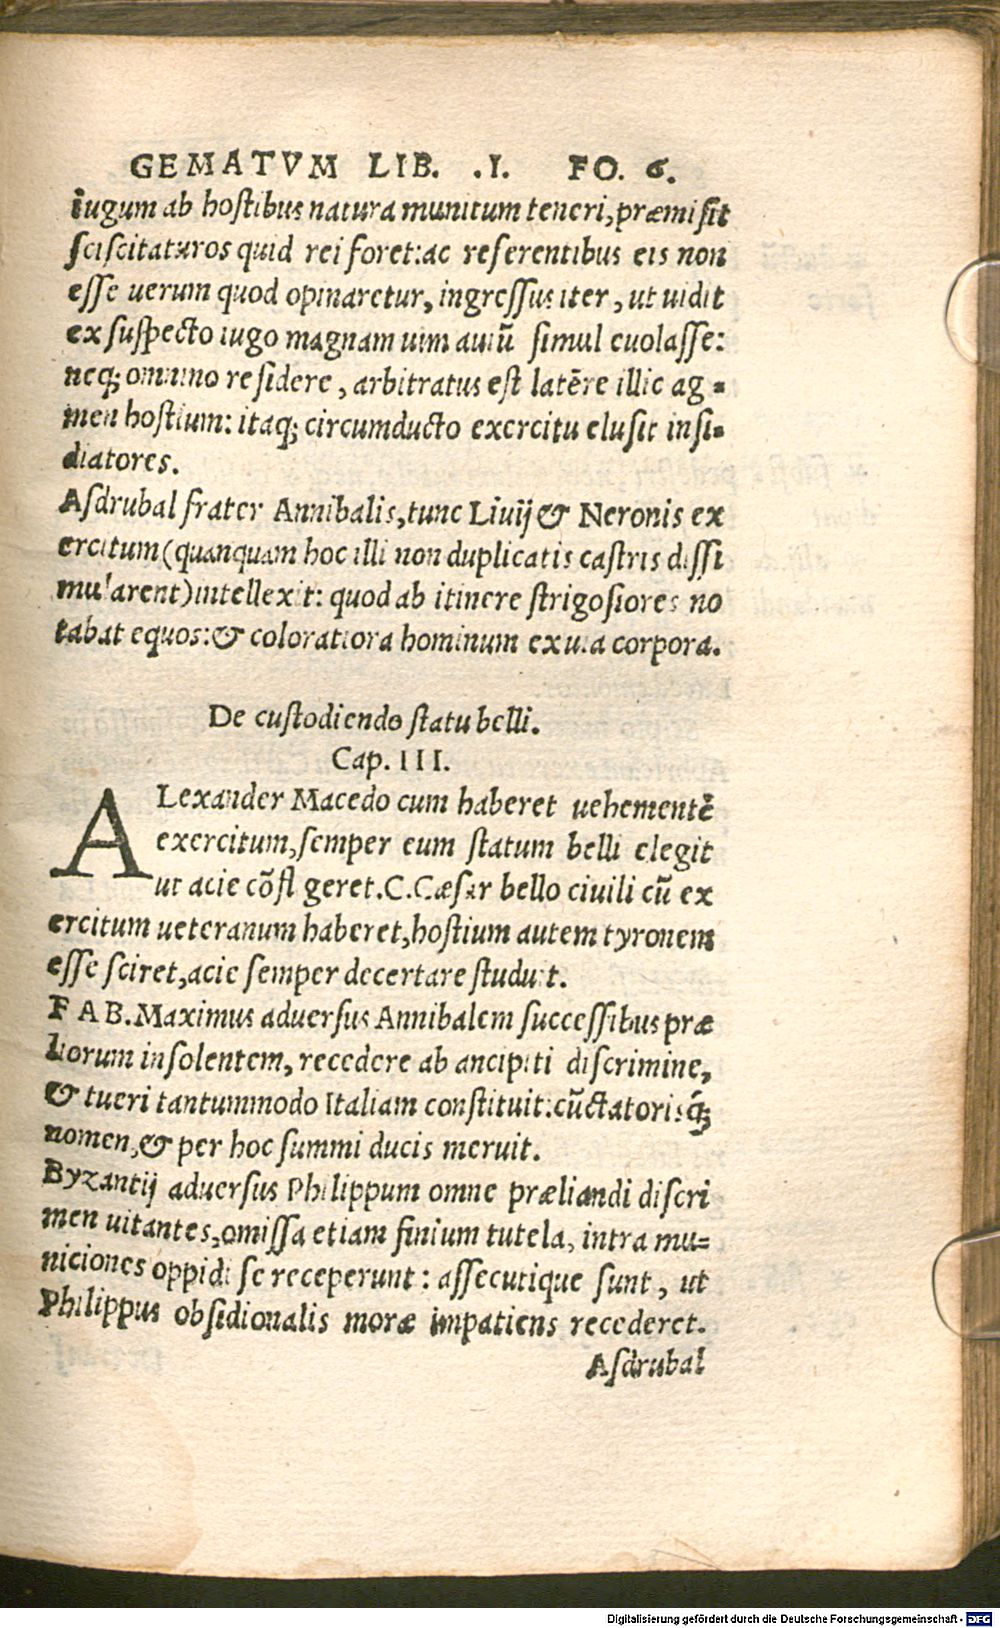 GEMATVM LIB. .I. FO. 6.
iugum ab hostibus natura munitum teneri, præmisit
sciscitaturos quid rei foret: ac referentibus eis non
esse uerum quod opinaretur, ingressus iter, ut uidit
ex suspecto iugo magnam uim auiũ simul euolasse:
neq; omnino residere, arbitratus est latẽre illic ag=
men hostium: itaq; circumducto exercitu elusit insi=
diatores.
Asdrubal frater Annibalis, tunc Liuij & Neronis ex
ercitum (quanquam hoc illi non duplicatis castris dissi
mularent) intellexit: quod ab itinere strigosiores no
tabat equos: & coloratiora hominum ex uia corpora.
De custodiendo statu belli.
Cap. III.
ALexander Macedo cum haberet uehementẽ
exercitum, semper eum statum belli elegit
ut acie cõfligeret. C. Cæsar bello ciuili cũ ex
ercitum ueteranum haberet, hostium autem tyronem
esse sciret, acie semper decertare studuit.
FAB. Maximus aduersus Annibalem successibus præ
liorum insolentem, recedere ab ancipiti discrimine,
& tueri tantummodo Italiam constituit: cũctatorisq́;
nomen, & per hoc summi ducis meruit.
Byzantij aduersus Philippum omne præliandi discri
men uitantes, omissa etiam finium tutela, intra mu=
niciones oppidi se receperunt: assecutique sunt, ut
Philippus obsidionalis moræ impatiens recederet.
Asdrubal
Digitalisierung gefördert durch die Deutsche Forschungsgemeinschaft - DFG